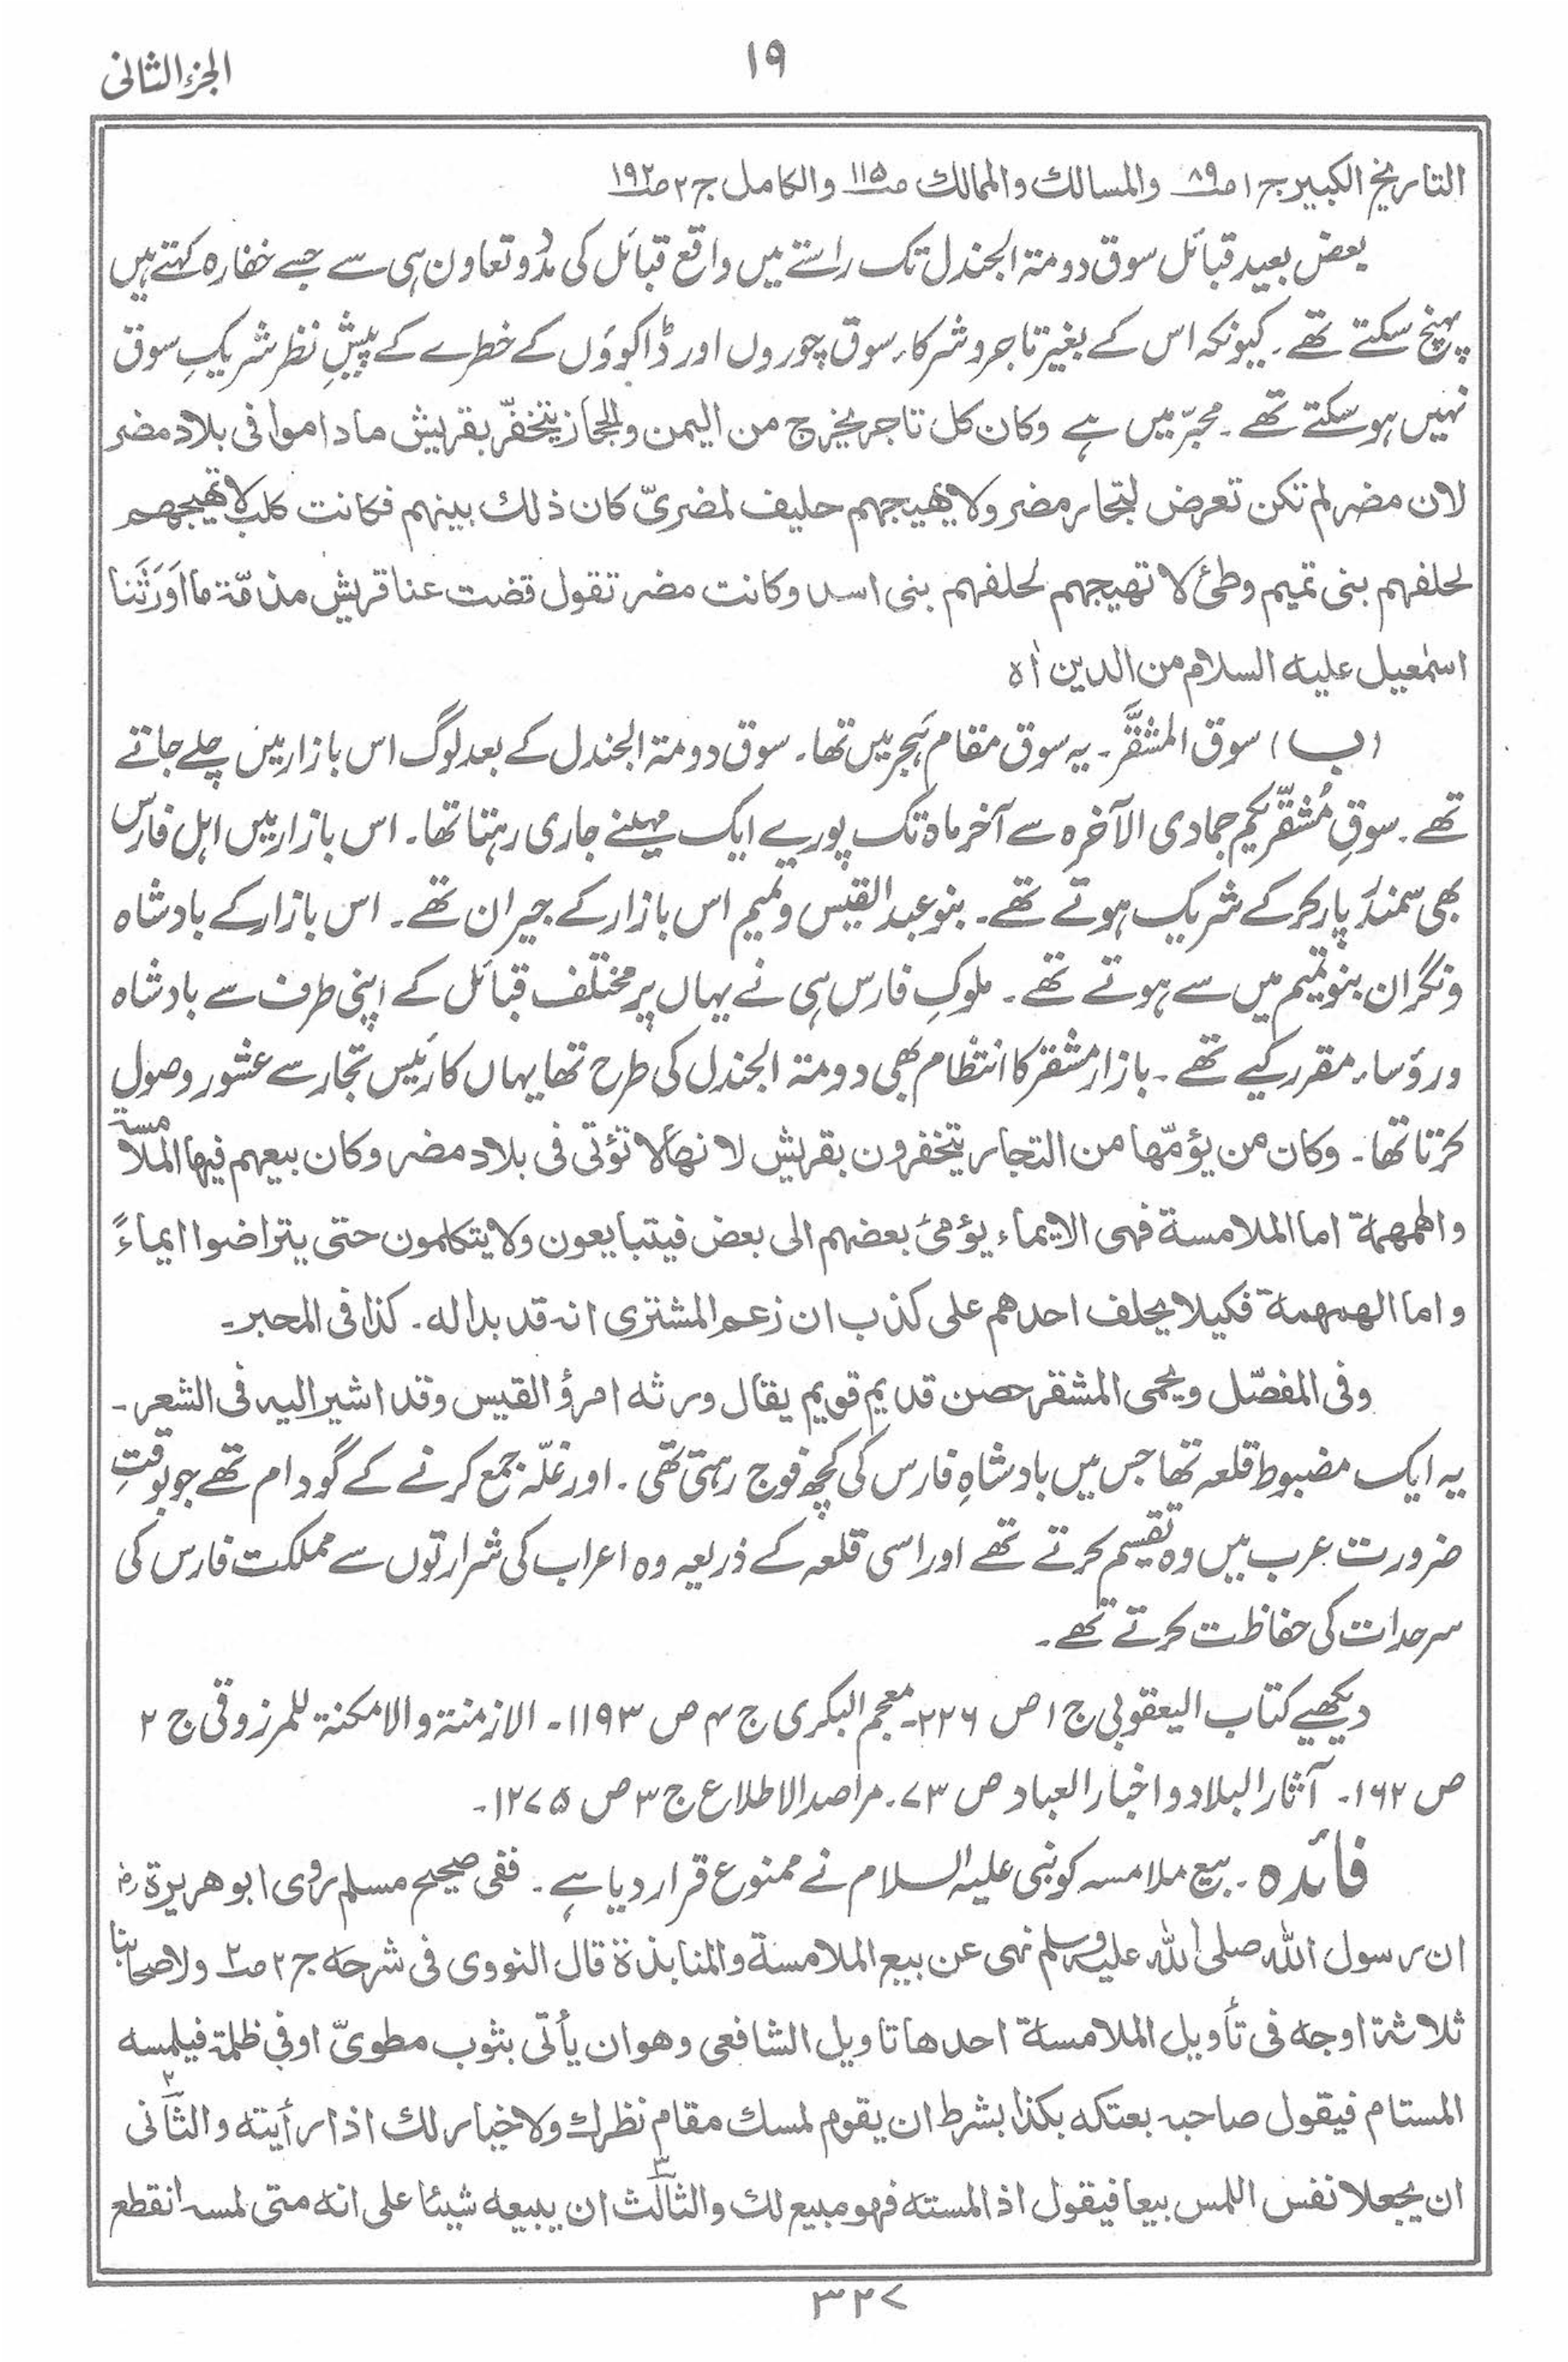 الجزء الثانی
۱۹
التاریخ الکبیر ج۱ ص۸۹ والمسالک والممالک ص۱۱۵ والکامل ج۲ ص۱۹۲
بعض بعید قبائل سوق دومۃ الجندل تک راستے میں واقع قبائل کی مدد و تعاون ہی سے جسے خفارہ کہتے ہیں
پہنچ سکتے تھے۔ کیونکہ اس کے بغیر تاجر و شرکاء سوق چوروں اور ڈاکووں کے خطرے کے پیشِ نظر شریکِ سوق
نہیں ہو سکتے تھے۔ محبّر میں ہے وکان کل تاجر یخرج من الیمن والحجاز یتخفّر بقریش ماداموا فی بلاد مضر
لان مضر لم تکن تعرض لتجار مضر ولا یھیجہم حلیف لمضریّ کان ذلک بینہم فکانت کلب لا تھیجھم
لحلفہم بنی تمیم وطئ لا تھیجہم لحلفہم بنی اسد وکانت مضر تقول قضت عنا قریش مذمّۃ ما اَورَثَنا
اسمٰعیل علیہ السلام من الدین اٰہ
(ب) سوق المشقَّر۔ یہ سوق مقام ہَجر میں تھا۔ سوق دومۃ الجندل کے بعد لوگ اس بازار میں چلے جاتے
تھے۔ سوقِ مُشقّر یکم جمادی الآخرہ سے آخر ماہ تک پورے ایک مہینے جاری رہتا تھا۔ اس بازار میں اہل فارس
بھی سمندر پار کرکے شریک ہوتے تھے۔ بنو عبد القیس وتمیم اس بازار کے جیران تھے۔ اس بازار کے بادشاہ
ونگران بنو تمیم میں سے ہوتے تھے۔ ملوکِ فارس ہی نے یہاں پر مختلف قبائل کے اپنی طرف سے بادشاہ
ورؤساء مقرر کیے تھے۔ بازار مشقر کا انتظام بھی دومۃ الجندل کی طرح تھا یہاں کا رئیس تجار سے عشور وصول
کرتا تھا۔ وکان من یؤمّھا من التجار یتخفرون بقریش لانھا لا تؤتی فی بلاد مضر وکان بیعہم فیہا الملامسۃ
والھمھمۃ اما الملامسۃ فہی الایماء یؤمئ بعضہم الی بعض فیتبایعون ولا یتکلمون حتی یتراضوا ایماءً
واما الھمھمۃ فکیلا یحلف احدھم علی کذب ان زعم المشتری انہ قد بدالہ۔ کذا فی المحبر۔
وفی المفصّل ویحمی المشقر حصن قدیم قویم یقال ورثہ امرؤ القیس وقد اشیر الیہ فی الشعر۔
یہ ایک مضبوط قلعہ تھا جس میں بادشاہِ فارس کی کچھ فوج رہتی تھی۔ اور غلّہ جمع کرنے کے گودام تھے جو بوقتِ
ضرورت عرب میں وہ تقسیم کرتے تھے اور اسی قلعہ کے ذریعہ وہ اعراب کی شرارتوں سے مملکت فارس کی
سرحدات کی حفاظت کرتے تھے۔
دیکھیے کتاب الیعقوبی ج ۱ ص ۲۲۶۔ معجم البکری ج ۴ ص ۱۱۹۳۔ الازمنۃ والامکنۃ للمرزوقی ج ۲
ص ۱۶۲۔ آثار البلاد و اخبار العباد ص ۷۳۔ مراصد الاطلاع ج ۳ ص ۱۲۷۵۔
فائدہ۔ بیع ملامسہ کو نبی علیہ السلام نے ممنوع قرار دیا ہے۔ ففی صحیح مسلم روی ابو ھریرۃ رض
ان رسول اللہ صلی اللہ علیہ وسلم نہی عن بیع الملامسۃ والمنابذۃ قال النووی فی شرحہ ج۲ ص۲ ولاصحابنا
ثلاثۃ اوجہ فی تأویل الملامسۃ احدھا تاویل الشافعی وھو ان یأتی بثوب مطویّ او فی ظلمۃ فیلمسہ
المستام فیقول صاحبہ بعتکہ بکذا بشرط ان یقوم لمسک مقام نظرک ولا خیار لک اذا رأیتہ والثانی۲
ان یجعلا نفس اللمس بیعا فیقول اذا لمستہ فھو مبیع لک والثالث۳ ان یبیعہ شیئا علی انہ متی لمسہ انقطع
۳۲۷